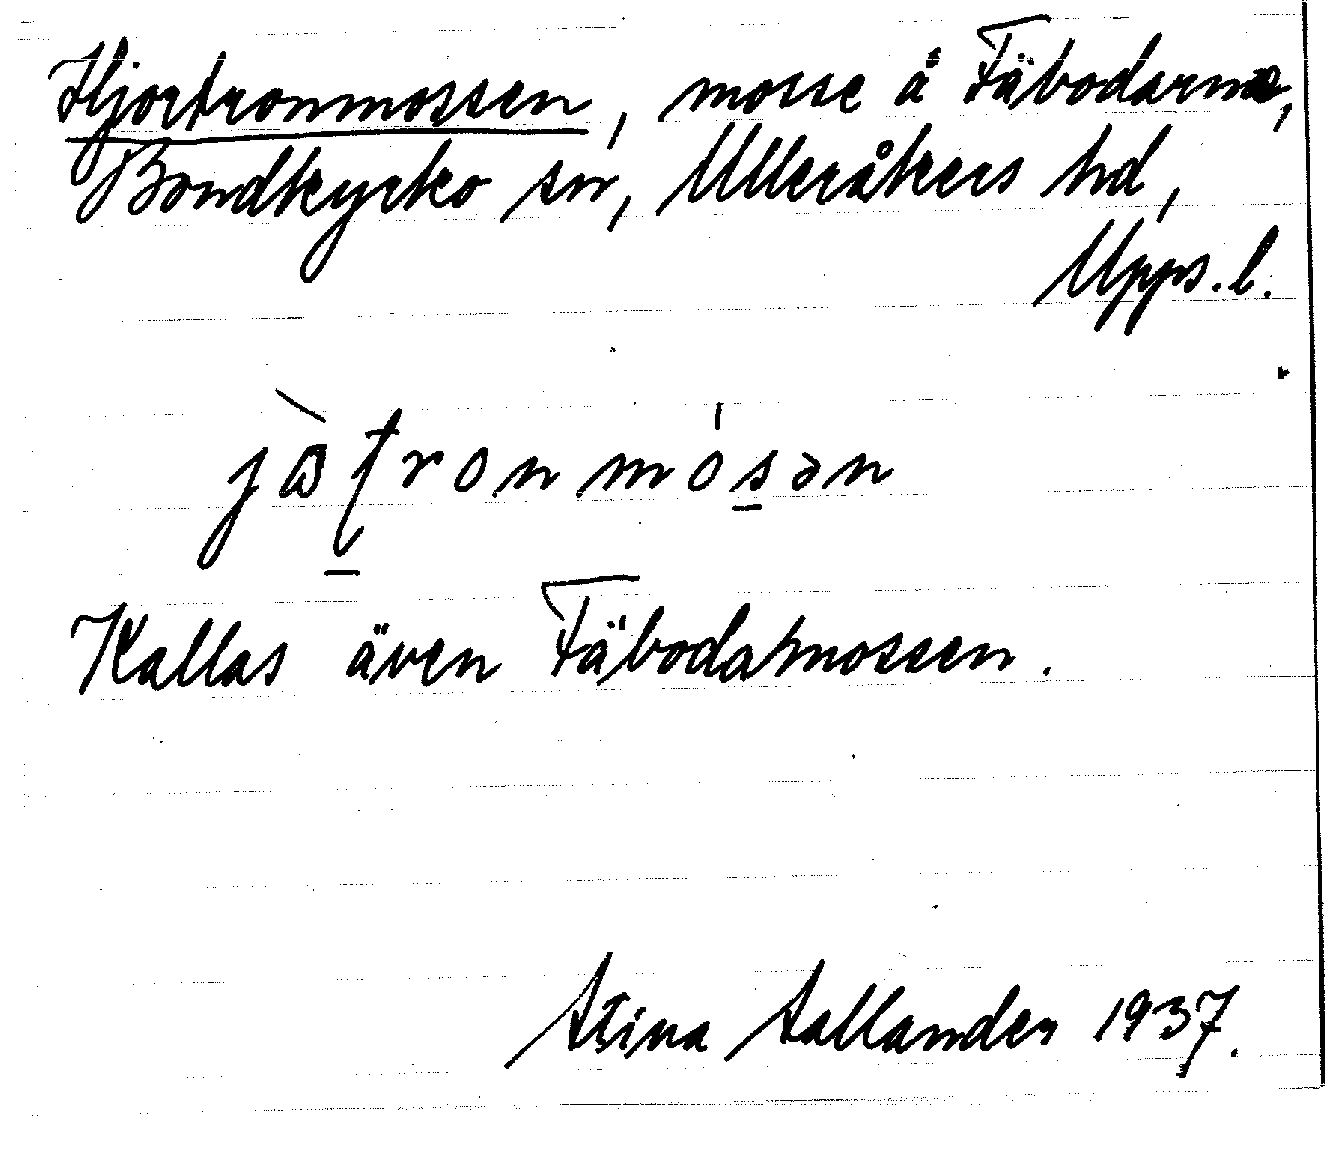 Hjortronmossen, mosse å Fäbodarna,
Bondkyrko sn, Ulleråkers hd,
Upps. l.
Kallas även Fäbodarmossen.
Stina Sallander 1937.